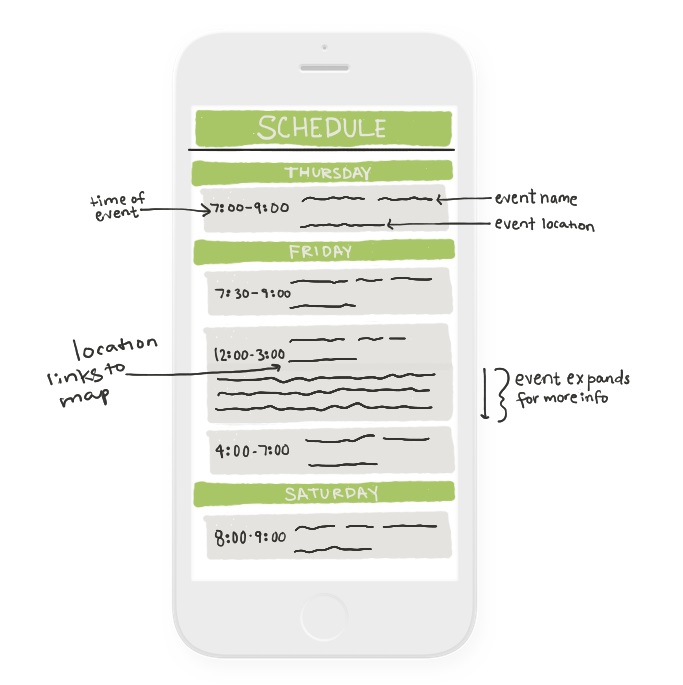 SCHEDULE
THURSDAY
time of
event
7:00-9:00
event name
event location
FRIDAY
7:30-9:00
12:00-3:00
location
links to
map
event expands
for more info
4:00-7:00
SATURDAY
8:00-9:00